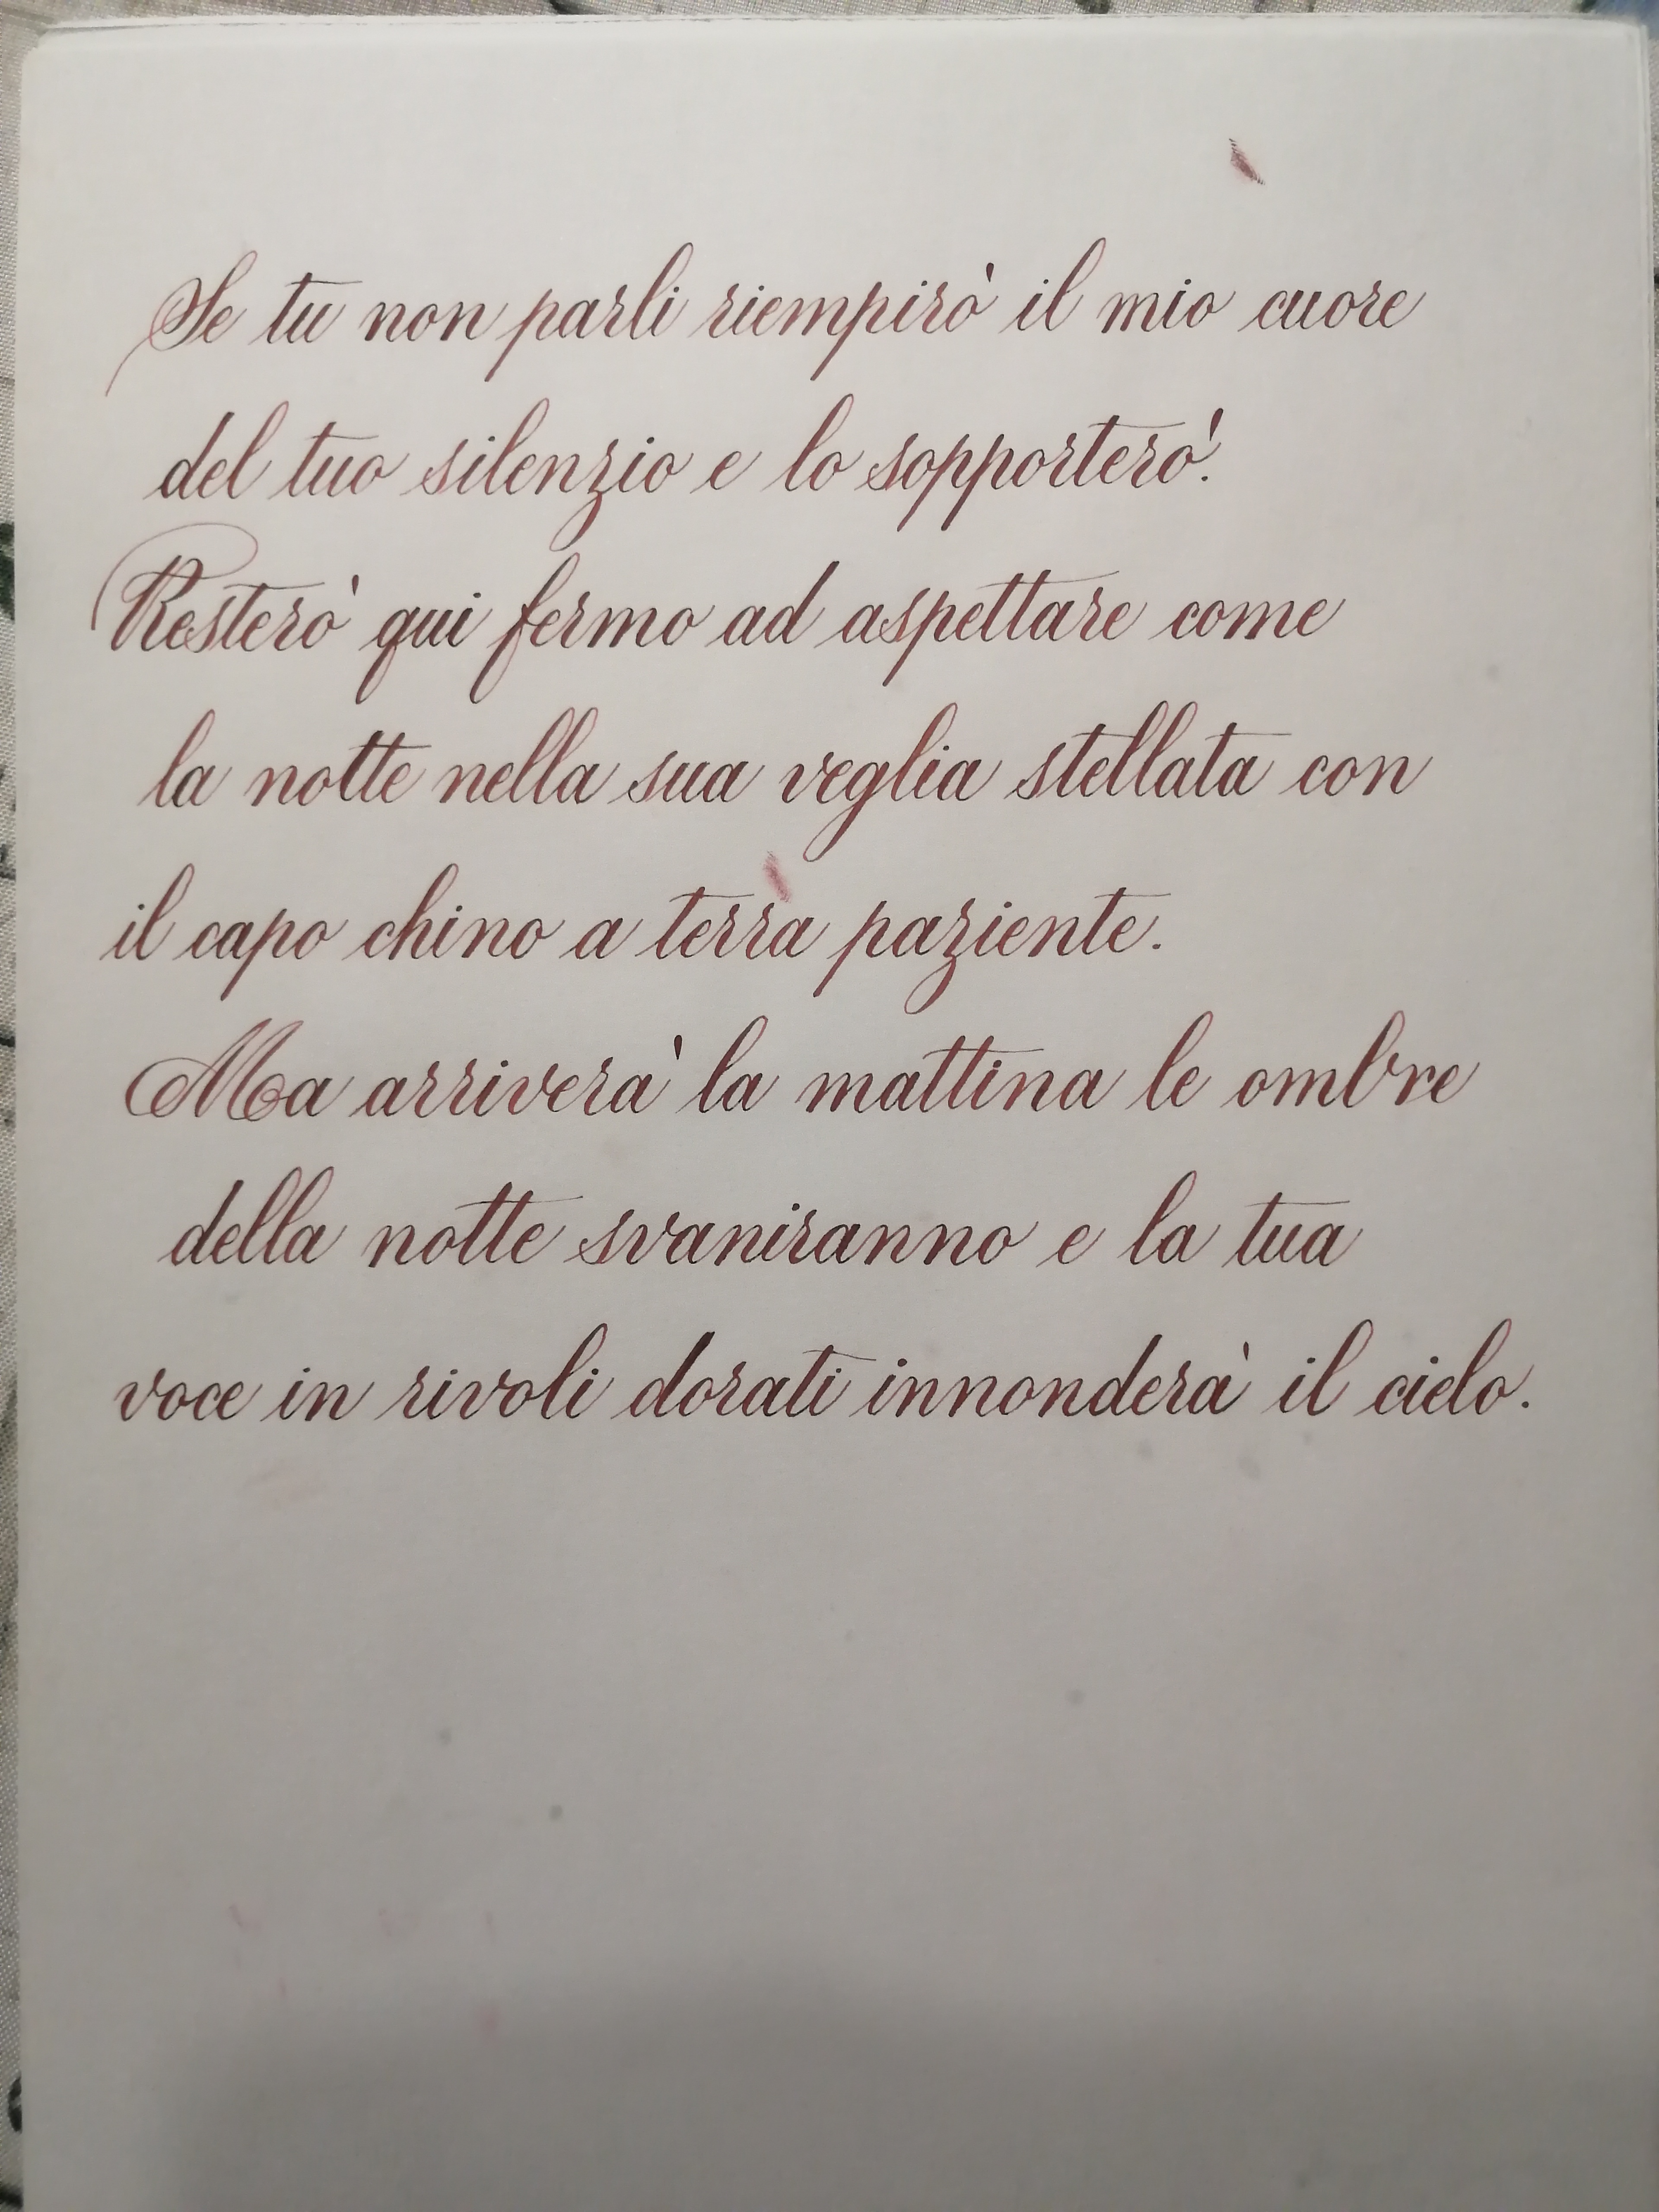 Se tu non parli riempirò il mio cuore
del tuo silenzio e lo sopporterò.
Resterò qui fermo ad aspettare come
la notte nella sua veglia stellata con
il capo chino a terra paziente.
Ma arriverà la mattina le ombre
della notte svaniranno e la tua
voce in rivoli dorati innonderà il cielo.